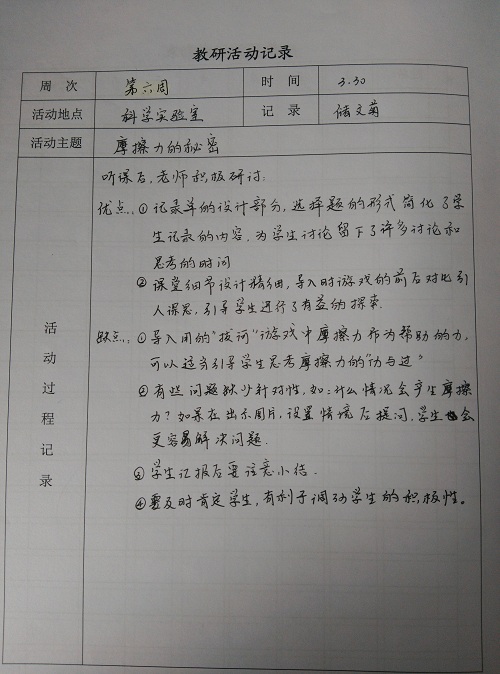 教研活动记录
周次 第六周 时间 3.30
活动地点 科学实验室 记录 储文菊
活动主题 摩擦力的秘密
活动过程记录
听课后,老师积极研讨:
优点:①记录单的设计部分,选择题的形式简化了学
生记录的内容,为学生讨论留下了许多讨论和
思考的时间
②课堂细节设计精细,导入时游戏的前后对比引
人深思,引导学生进行了有益的探究.
缺点:①导入用的"拔河"游戏中摩擦力作为帮助的力,
可以适当引导学生思考摩擦力的"功与过"
②有些问题缺少针对性,如:什么情况会产生摩擦
力?如果在出示图片,设置情境后提问,学生会
更容易解决问题.
③学生汇报后要注意小结.
④要及时肯定学生,有利于调动学生的积极性。